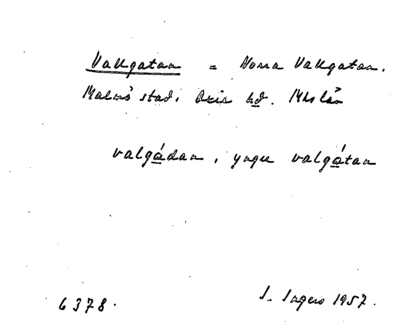 Vallgatan = Norra Vallgatan.
Malmö stad. Oxie hd. Mhs län
valgádan, yngre valgátan
6378. S. Ingers 1957.